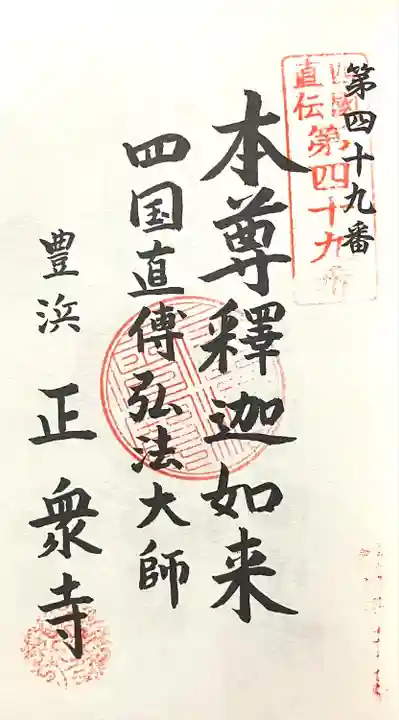 第四十九番
四國
直伝第四十九
本尊釋迦如来
四国直傳弘法大師
豊浜 正衆寺